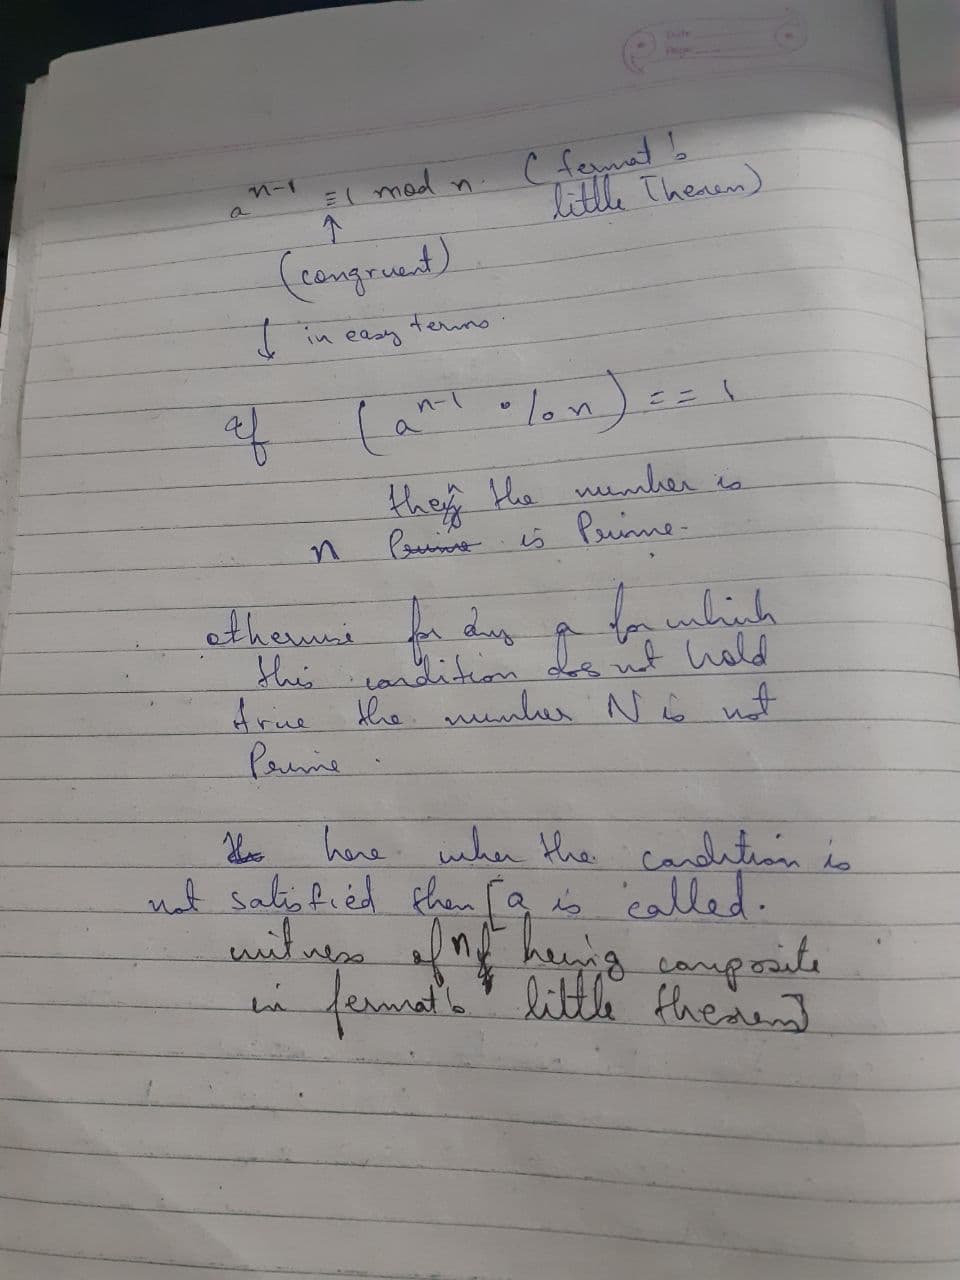 Date
Page
a^{n-1} ≡ 1 mod n. (fermat's
little Theorem)
↑
(congruent)
↓ in easy terms.
if (a^{n-1} % n) == 1
then the number is
n Prime is Prime.
otherwise for any a for which
this condition does not hold
true the number N is not
Prime.
here when the condition is
not satisfied then [a is called.
witness of n being composite
in fermat's little theorem]